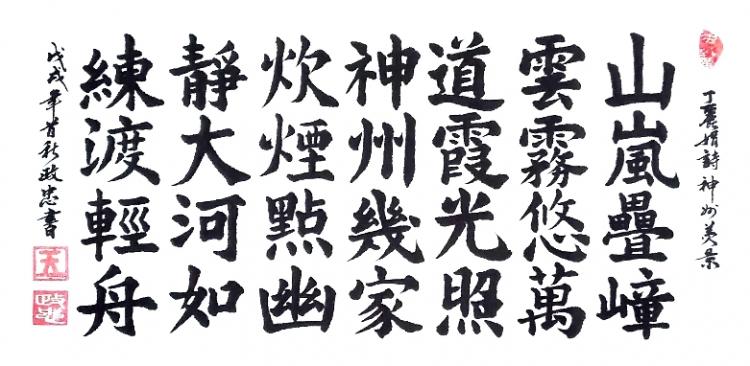 丁麗娟詩神州美景
山嵐疊嶂
雲霧悠萬
道霞光照
神州幾家
炊煙點幽
靜大河如
練渡輕舟
戊戌年首秋政忠書